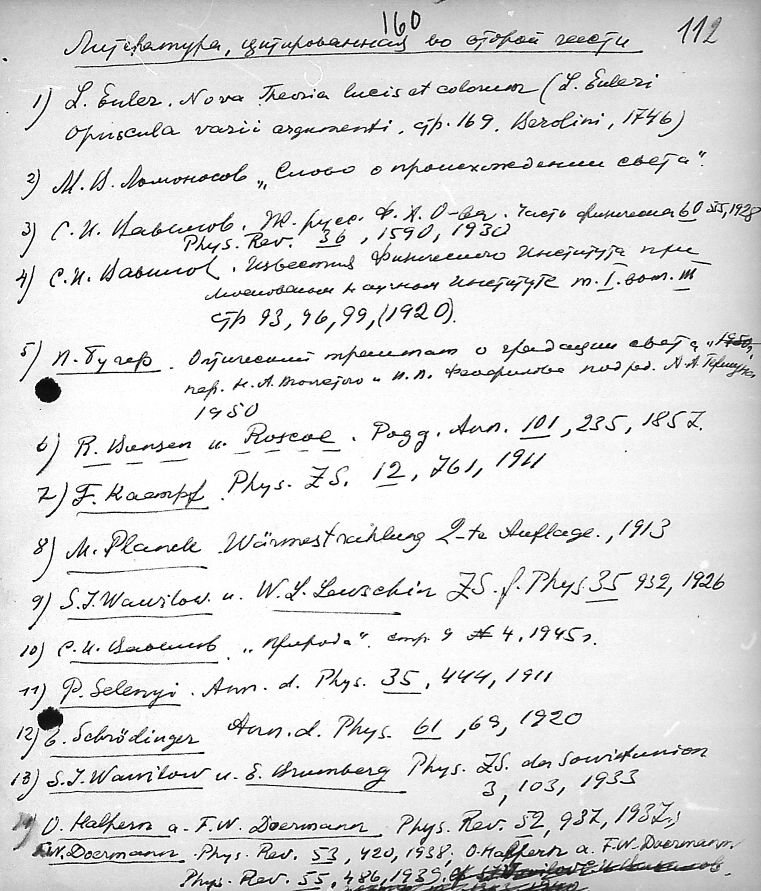 160
112
Литература, цитированная во второй части
1) L. Euler. Nova Theoria lucis et colorum (L. Euleri
Opuscula varii argumenti, стр. 169, Berolini, 1746)
2) М. В. Ломоносов „Слово о происхождении света“.
3) С. И. Вавилов. Ж. русс. Ф. Х. О-ва. Часть физическая 60 1928
Phys. Rev. 36, 1590, 1930
4) С. И. Вавилов. Известия Физического Института при
Московском научном институте т. I. вып. III
стр 93, 96, 99, (1920).
5) П. Бугер. Оптический трактат о градации света,
пер. Н. А. Толстого и П. П. Феофилова под ред. А. А. Гершуна
1950
6) R. Bunsen u. Roscoe. Pogg. Ann. 101, 235, 1857.
7) F. Kaempf. Phys. ZS. 12, 761, 1911
8) M. Planck Wärmestrahlung 2-te Auflage., 1913
9) S. J. Wawilow u. W. L. Lewschin ZS. f. Phys. 35 932, 1926
10) С. И. Вавилов. „Природа“. стр. 9 № 4, 1945 г.
11) P. Selenyi. Ann. d. Phys. 35, 444, 1911
12) E. Schrödinger Ann. d. Phys. 61, 69, 1920
13) S. J. Wawilow u. E. Brumberg Phys. ZS. der Sowietunion
3, 103, 1933
14) O. Halpern a. F. W. Doermann Phys. Rev. 52, 937, 1937;
F. W. Doermann. Phys. Rev. 53, 420, 1938; O. Halpern a. F. W. Doermann
Phys. Rev. 55, 486, 1939,